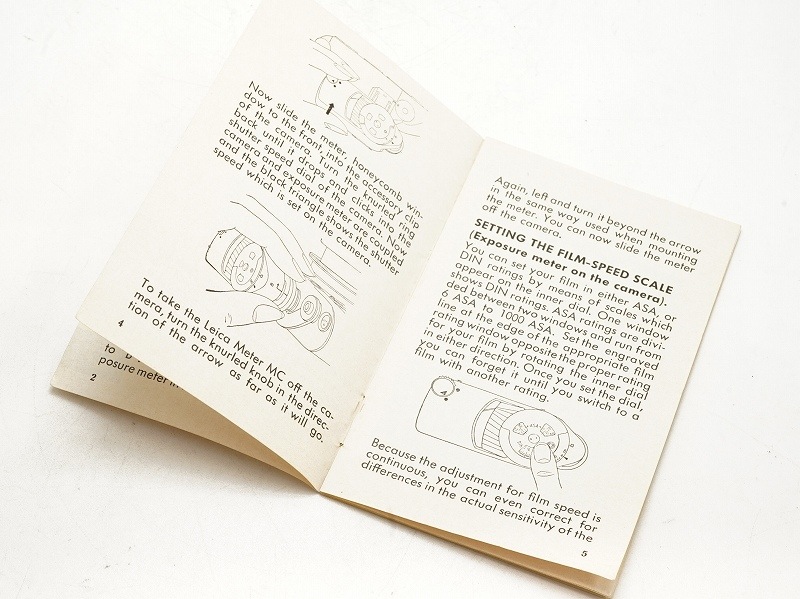 Now slide the meter, honeycomb win-
dow to the front, into the accessory clip
of the camera. Turn the knurled ring
back until it drops and clicks into the
shutter speed dial of the camera. Now
camera and exposure meter are coupled
and the black triangle shows the shutter
speed which is set on the camera.
To take the Leica Meter MC off the ca-
mera, turn the knurled knob in the direc-
tion of the arrow as far as it will go.
4
to
posure meter in
2
Again, left and turn it beyond the arrow
in the same way used when mounting
the meter. You can now slide the meter
off the camera.
SETTING THE FILM-SPEED SCALE
(Exposure meter on the camera).
You can set your film in either ASA, or
DIN ratings by means of scales which
appear on the inner dial. One window
shows DIN ratings. ASA ratings are divi-
ded between two windows and run from
6 ASA to 1000 ASA. Set the engraved
line at the edge of the appropriate film
rating window opposite the proper rating
for your film by rotating the inner dial
in either direction. Once you set the dial,
you can forget it until you switch to a
film with another rating.
Because the adjustment for film speed is
continuous, you can even correct for
differences in the actual sensitivity of the
5